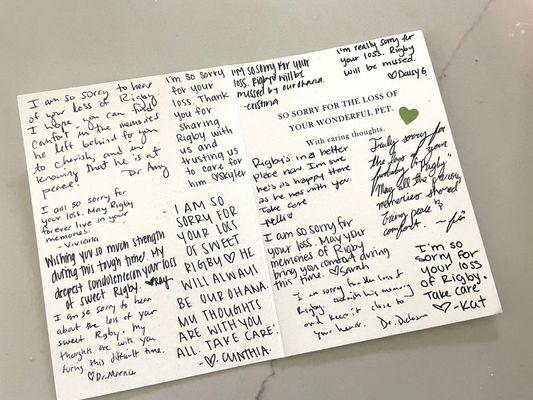 I am so sorry to hear
of your loss of Rigby
I hope you can find
comfort in the memories
he left behind for you
to cherish, and in
knowing that he is at
peace!
Dr Amy
I am so sorry for
your loss. May Rigby
forever live in your
memories.
- Viviana
Wishing you so much strength
during this tough time. My
deepest condolences on your loss
of sweet Rigby.
I am so sorry to hear
about the loss of your
sweet Rigby. My
thoughts are with you
during this difficult time.
♡Dr. Marnie
I'm so sorry
for your
loss. Thank
you for
sharing
Rigby with
us and
trusting us
to care for
him. ♡Skyler
- I AM SO
SORRY FOR
YOUR LOSS
OF SWEET
RIGBY ♡ HE
WILL ALWAYS
BE OUR OHANA.
MY THOUGHTS
ARE WITH YOU
ALL. TAKE CARE!
-♡. CYNTHIA.
I'm so sorry for your
loss. Rigby will be
missed by our ohana.
-cristina
I'm really sorry for
your loss. Rigby
will be missed.
♡Daisy G
SO SORRY FOR THE LOSS OF
YOUR WONDERFUL PET.
With caring thoughts,
Rigby's in a better
place now. I'm sure
he's as happy there
as he was with you
Take care
-Nelli♡
Truly sorry for
the loss of your
"Rigby"
May all the
memories shared
bring peace &
comfort.
I am so sorry for
your loss. May your
memories of Rigby
bring you comfort during
this time. ♡Sarah
I am sorry for the loss of
Rigby. Cherish his memory
and keep it close to
your heart. Dr. Dickson
I'm so
sorry for
your loss
of Rigby.
Take care
♡-Kat